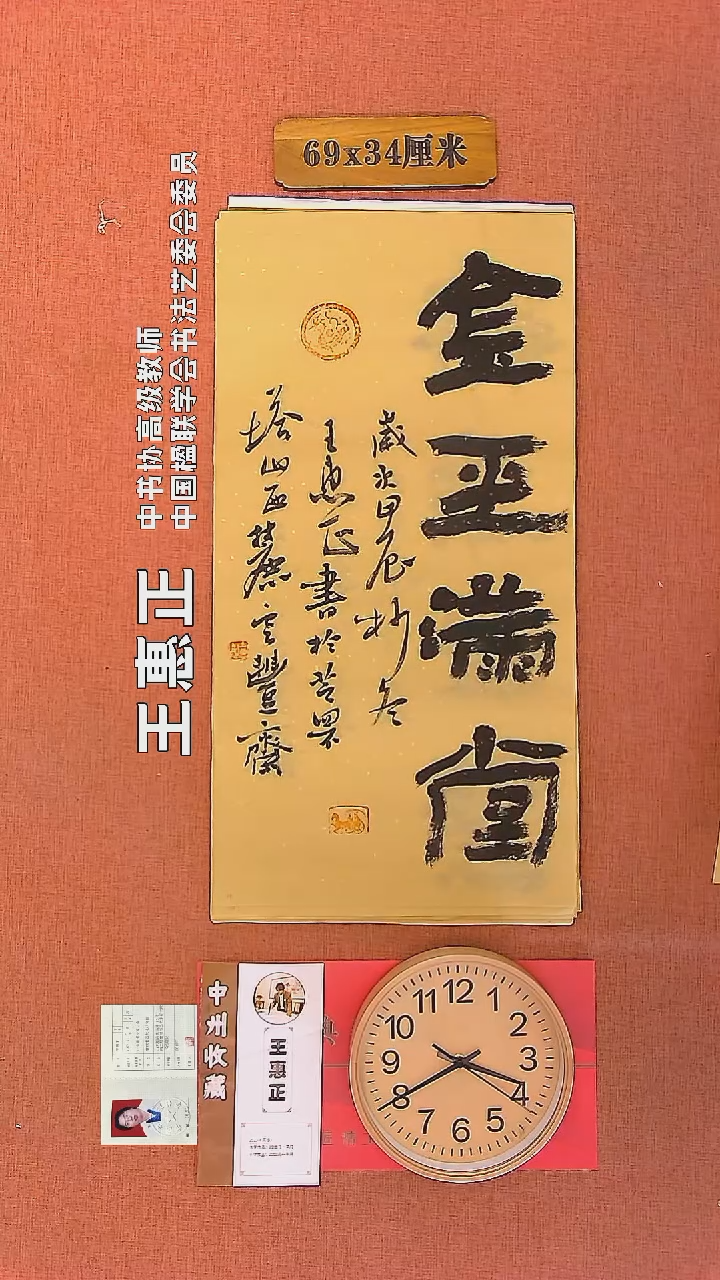 69x34厘米
金玉满堂
歲次甲辰杪冬
王惠正書於营果
塔山西麓雲豐齋
王惠正
中书协高级教师
中国楹联学会书法艺委会委员
中生收藏
王惠正
典
12
1
2
3
4
5
6
7
8
9
10
11